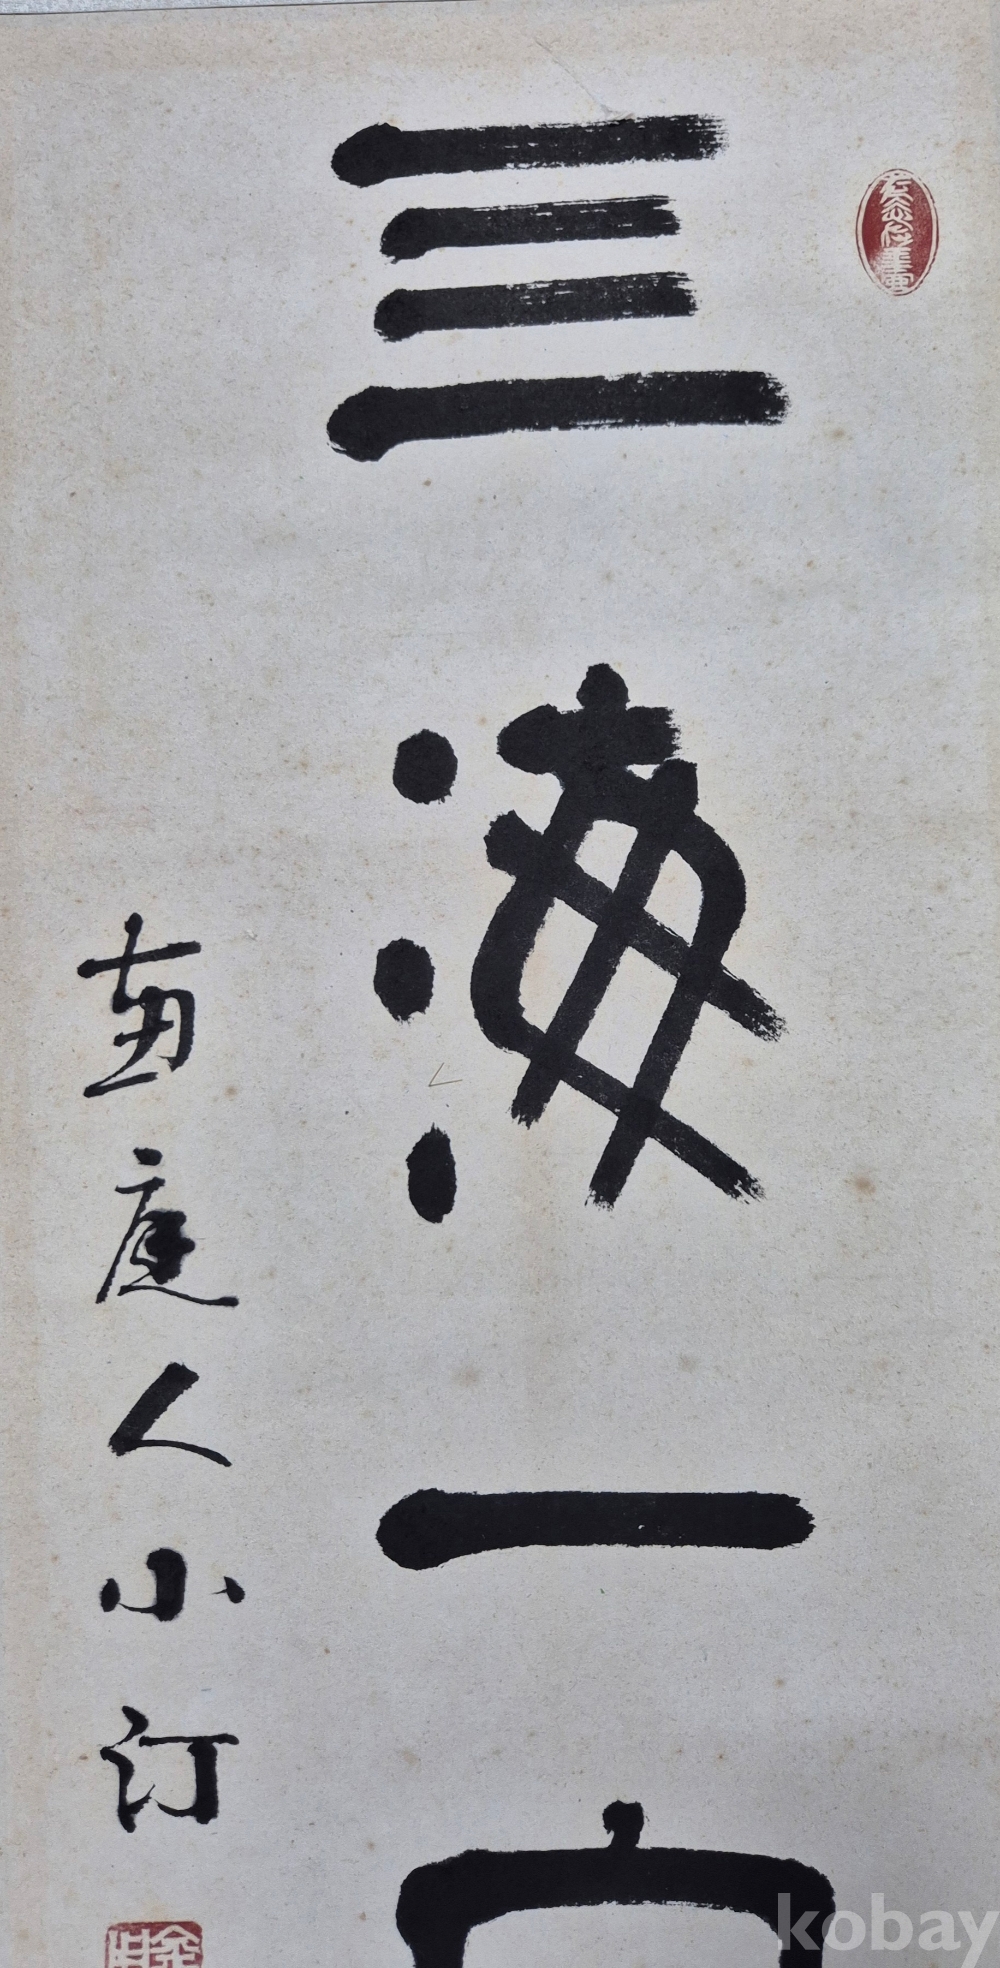 亖海一
画庭人小汀
kobay